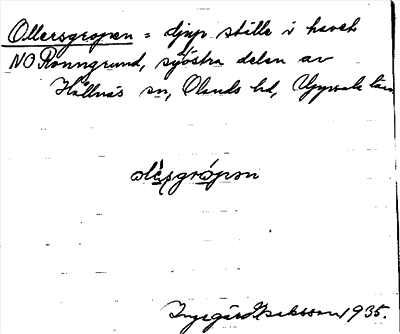 Ollersgropen = djup ställe i havet
NO Rönngrund, syöstra delen av
Hållnäs sn, Olands hd, Uppsala län
olèṣgrópən
Ingegärd Isaksson 1935.